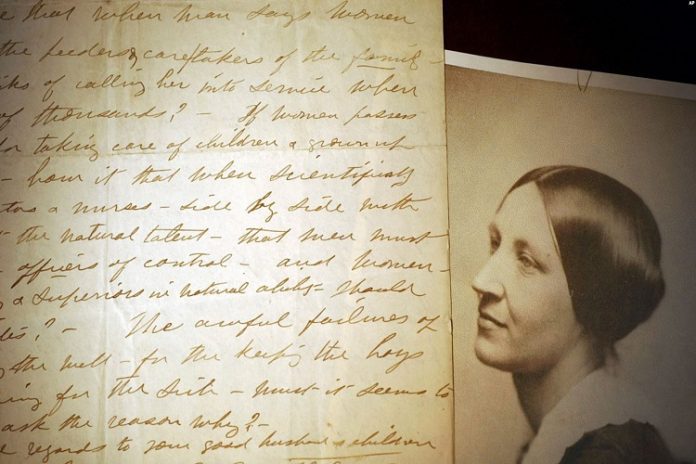 AP
e that when man says women
the feeders & caretakers of the family -
iks of calling her into service when
of thousands? - If women possess
for taking care of children & grown up
- how is it that when scientifically
as a nurse - side by side with
the natural talent - that men must
officers of control - and women -
& superiors in natural ability - should
? - The awful failures of
the well - for the keeping the boys
ing for the sick - must it seems to
ask the reason why? -
e regards to your good husband & children